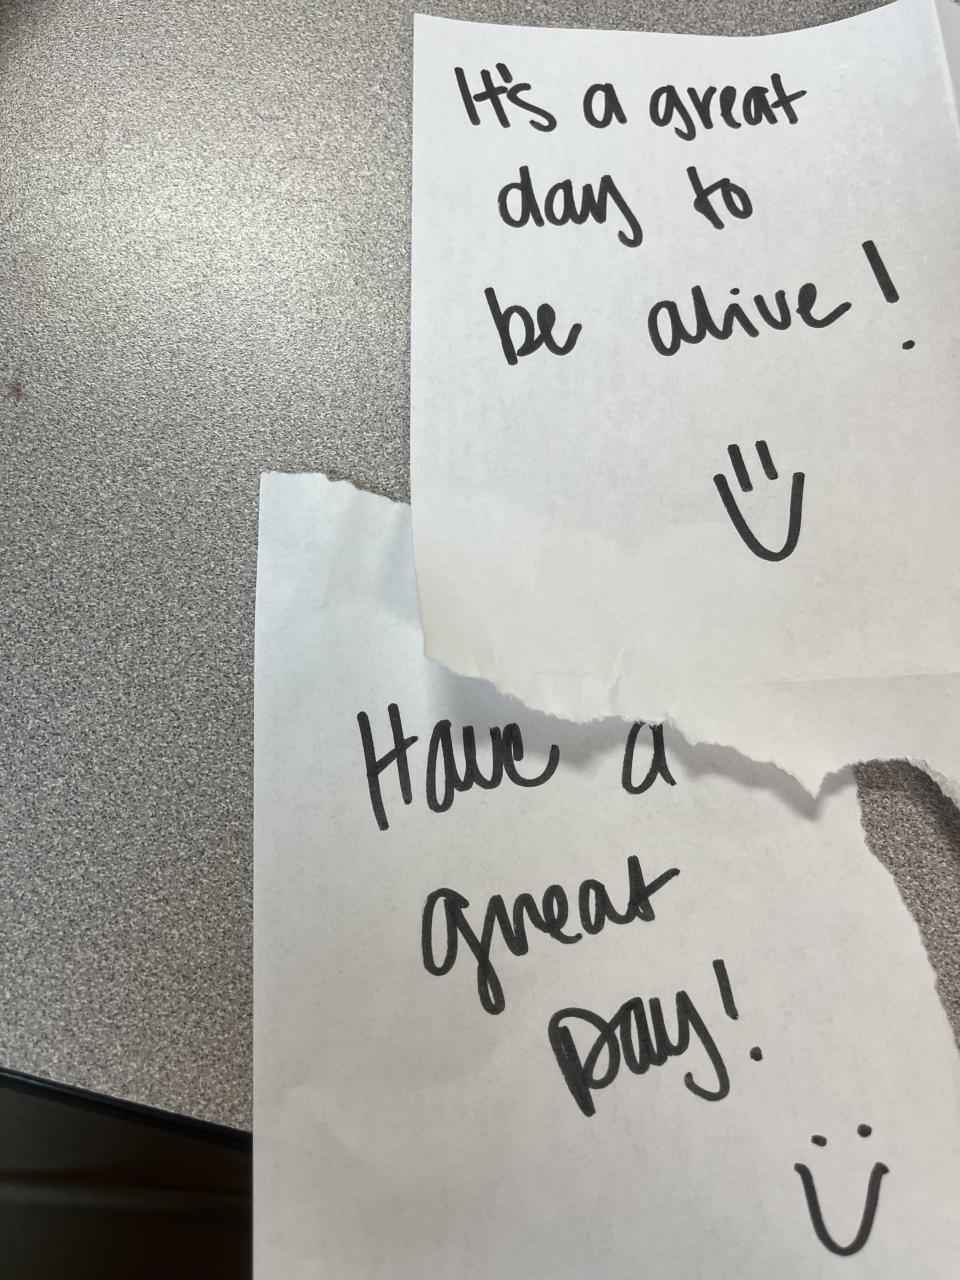 It's a great
day to
be alive!
Have a
great
Day!